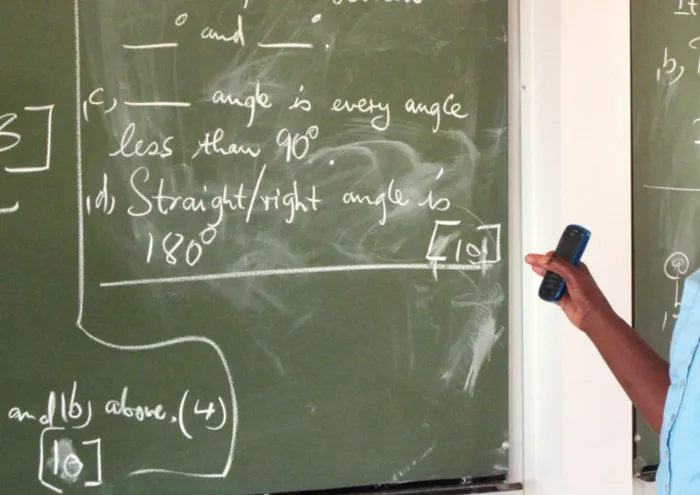 ___° and ___°.
(c) ___ angle is every angle
less than 90°.
(d) Straight/right angle is
180°
[10]
3]
and (b) above. (4)
[10]
b)